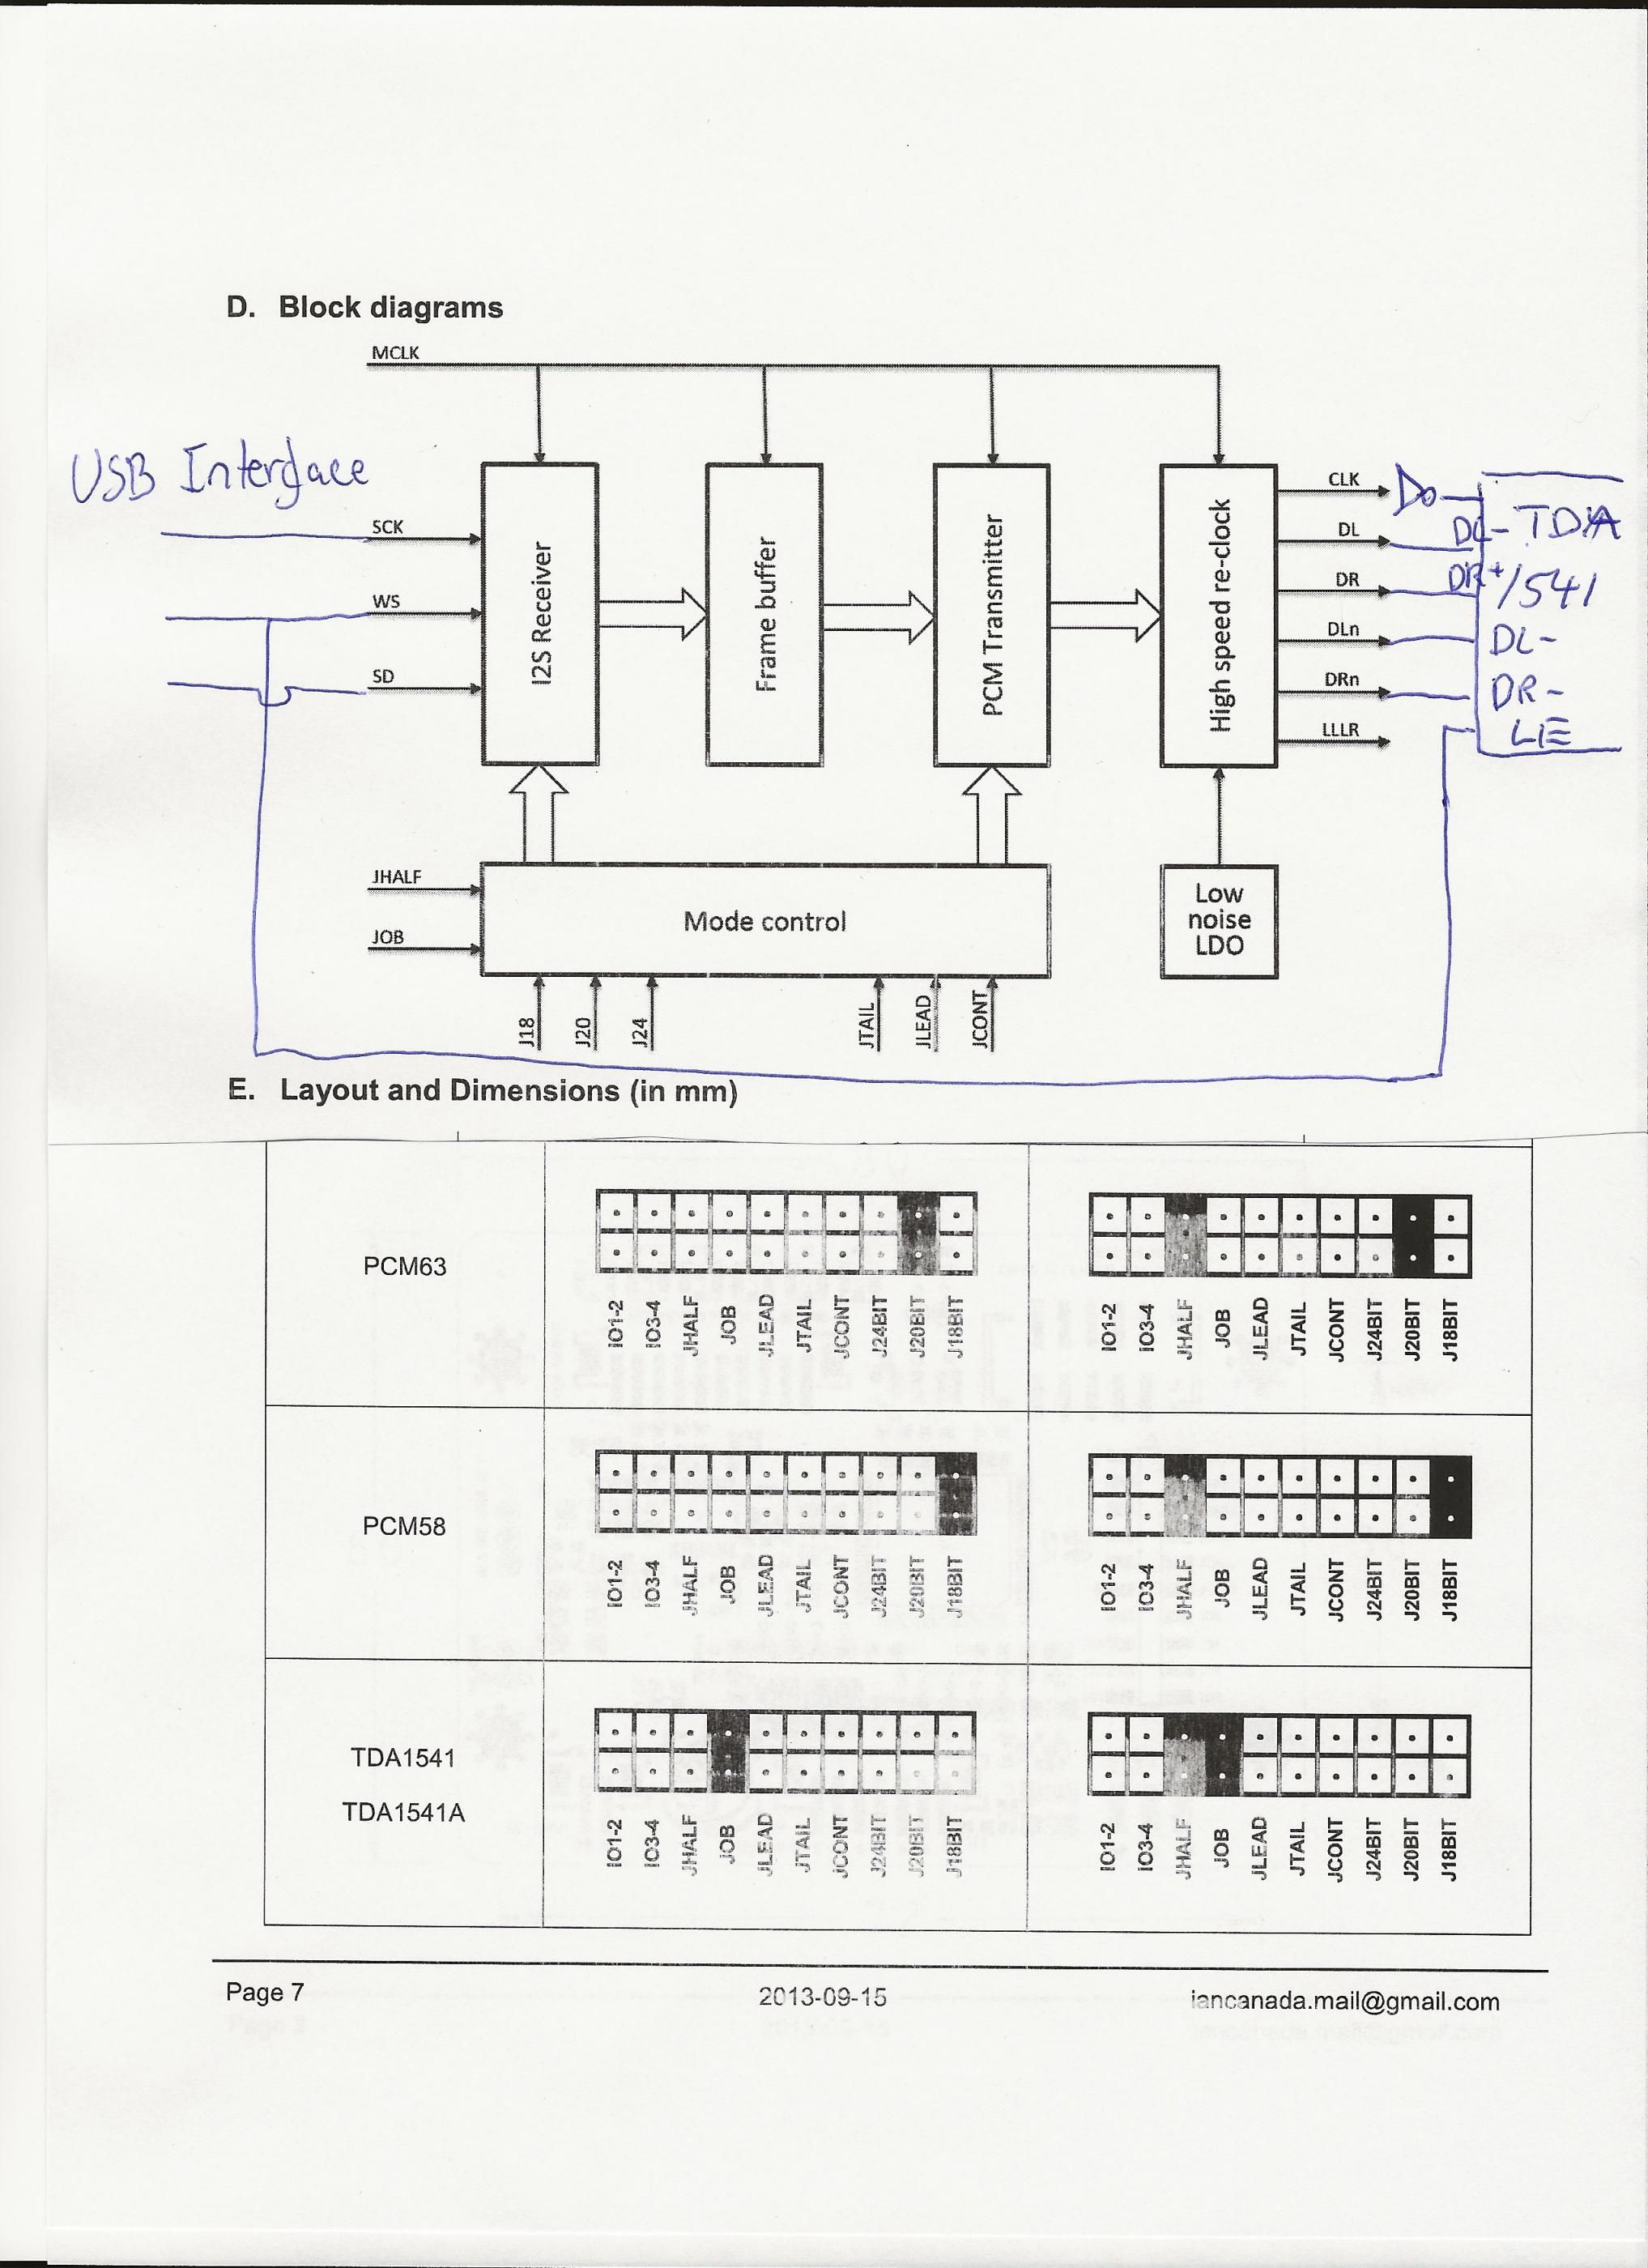 D. Block diagrams
MCLK
USB Interface
SCK
WS
SD
I2S Receiver
Frame buffer
PCM Transmitter
High speed re-clock
CLK
DL
DR
DLn
DRn
LLLR
DL- TDA
DR+ 1541
DL-
DR-
LE
JHALF
JOB
Mode control
Low
noise
LDO
J18 J20 J24 JTAIL JLEAD JCONT
E. Layout and Dimensions (in mm)
PCM63
IO1-2 IO3-4 JHALF JOB JLEAD JTAIL JCONT J24BIT J20BIT J18BIT
IO1-2 IO3-4 JHALF JOB JLEAD JTAIL JCONT J24BIT J20BIT J18BIT
PCM58
IO1-2 IO3-4 JHALF JOB JLEAD JTAIL JCONT J24BIT J20BIT J18BIT
IO1-2 IO3-4 JHALF JOB JLEAD JTAIL JCONT J24BIT J20BIT J18BIT
TDA1541
TDA1541A
IO1-2 IO3-4 JHALF JOB JLEAD JTAIL JCONT J24BIT J20BIT J18BIT
IO1-2 IO3-4 JHALF JOB JLEAD JTAIL JCONT J24BIT J20BIT J18BIT
Page 7 2013-09-15 iancanada.mail@gmail.com